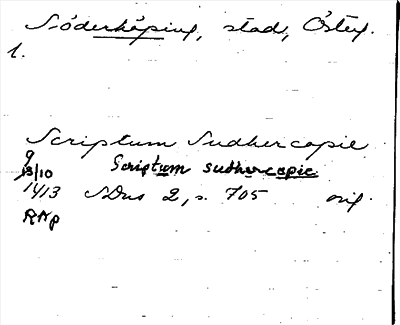 Söderköping, stad, Östg.
1.
Scriptum Sudhercopie
9
13/10 Scriptum sudhercopic
1413 SDns 2, s. 705 orig
RAp